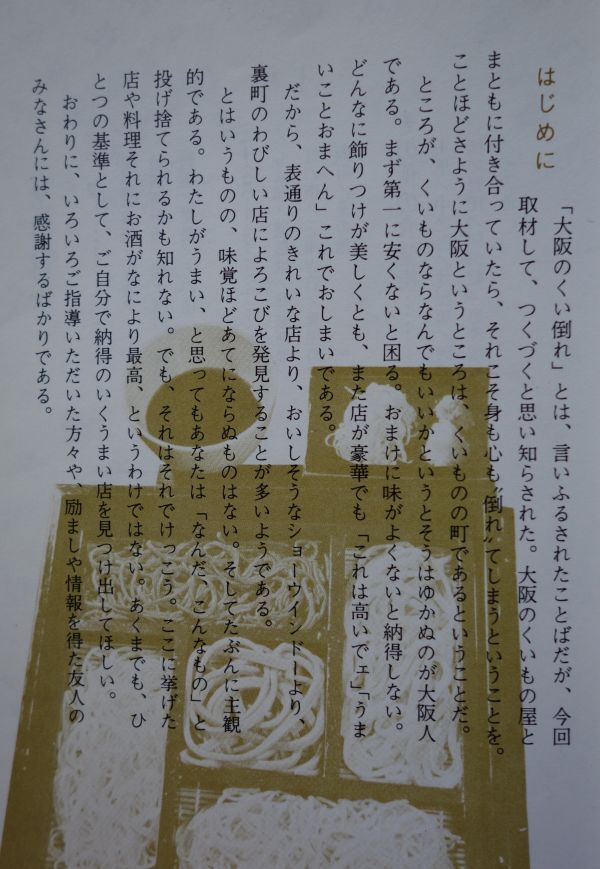 はじめに
「大阪のくい倒れ」とは、言いふるされたことばだが、今回
取材して、つくづくと思い知らされた。大阪のくいもの屋と
まともに付き合っていたら、それこそ身も心も〝倒れ〟てしまうということを。
ことほどさように大阪というところは、くいものの町であるということだ。
ところが、くいものならなんでもいいかというとそうはゆかぬのが大阪人
である。まず第一に安くないと困る。おまけに味がよくないと納得しない。
どんなに飾りつけが美しくとも、また店が豪華でも「これは高いでェ」「うま
いことおまへん」これでおしまいである。
だから、表通りのきれいな店より、おいしそうなショーウインドーより、
裏町のわびしい店によろこびを発見することが多いようである。
とはいうものの、味覚ほどあてにならぬものはない。そしてたぶんに主観
的である。わたしがうまい、と思ってもあなたは「なんだ、こんなもの」と
投げ捨てられるかも知れない。でも、それはそれでけっこう。ここに挙げた
店や料理それにお酒がなにより最高、というわけではない。あくまでも、ひ
とつの基準として、ご自分で納得のいくうまい店を見つけ出してほしい。
おわりに、いろいろご指導いただいた方々や、励ましや情報を得た友人の
みなさんには、感謝するばかりである。